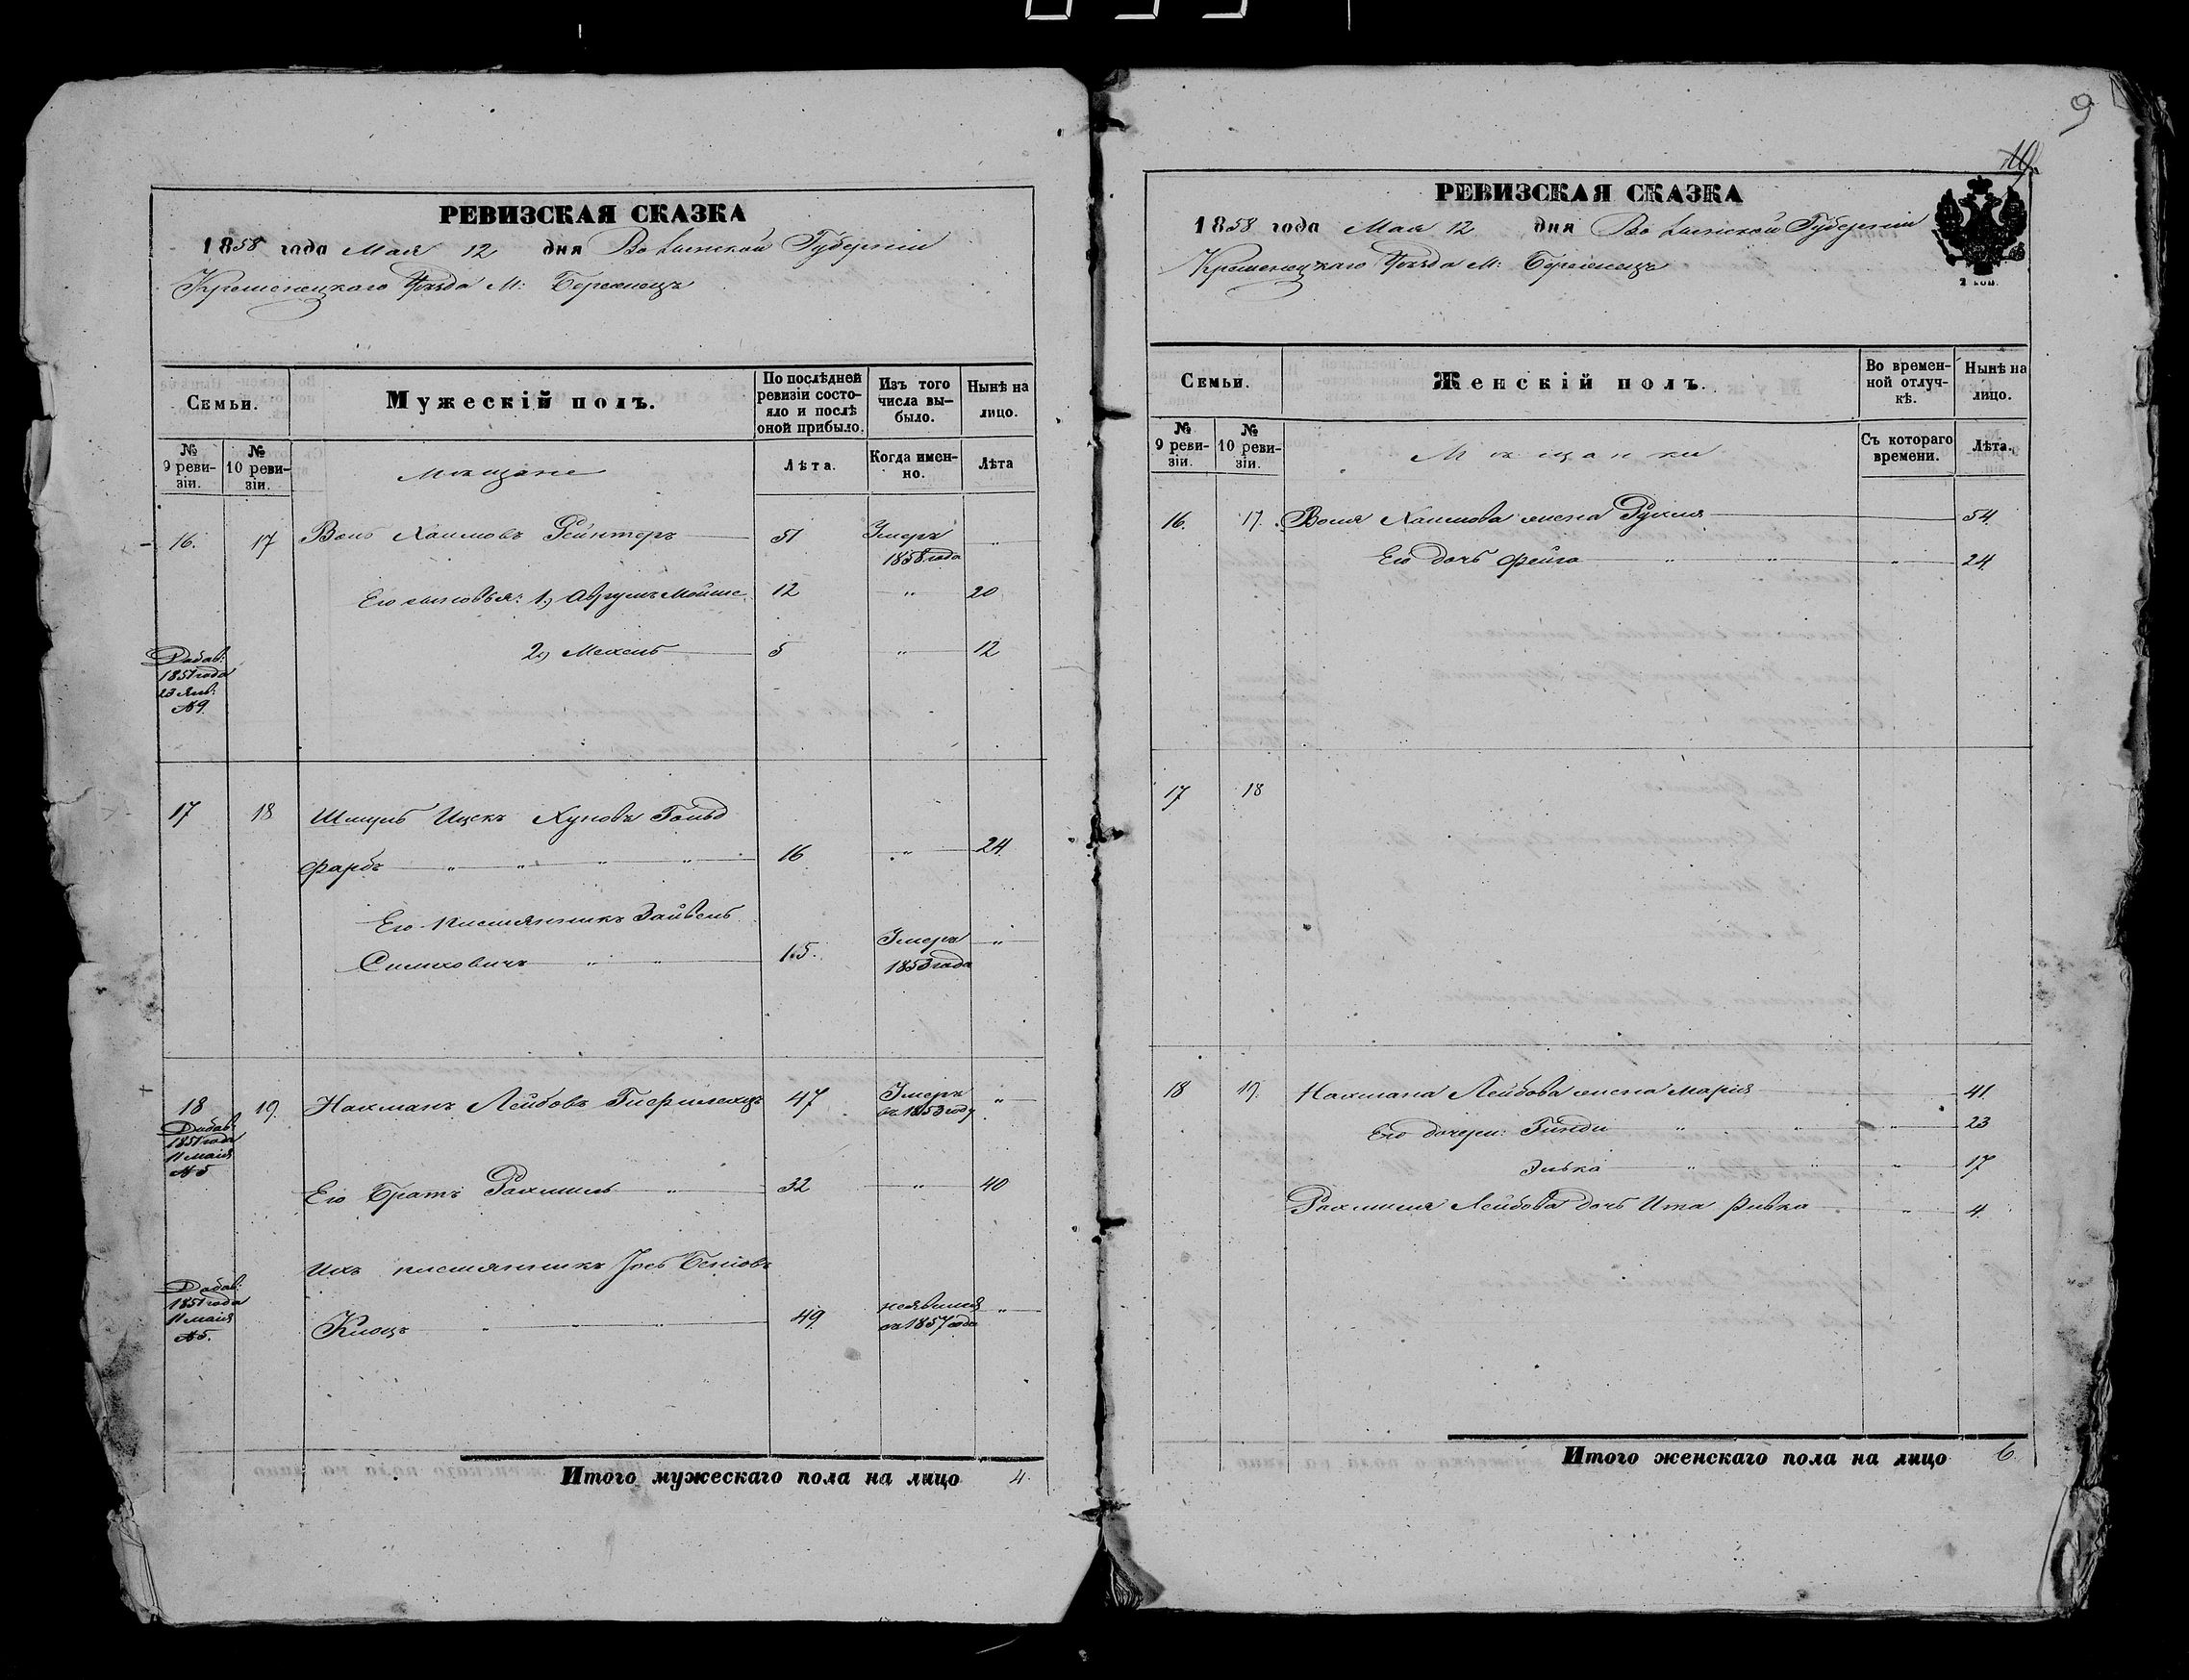 РЕВИЗСКАЯ СКАЗКА
1858 года Мая 12 дня Волынской Губернии
Кременецкаго Уѣзда М: Бережецъ
Семьи.
Мужескій полъ.
По послѣдней ревизіи состояло и послѣ оной прибыло.
Изъ того числа выбыло.
Нынѣ на лицо.
№ 9 ревизіи.
№ 10 ревизіи.
Мѣщане
Лѣта.
Когда именно.
Лѣта
16. 17 Воль Хаимовъ Рейнтеръ 51 Умеръ 1858 года "
Его сыновья: 1) Аврумъ Мойше 12 " 20
2) Мехель 5 " 12
Добав:
1851 года
23 Янв:
№ 9
17 18 Шмуль Ицекъ Хуновъ Гольд
фарбъ " " " " 16 " 24
Его племянникъ Зайвель
" " 15. Умеръ 1853 года "
18 19. Нахманъ Лейбовъ 47 Умеръ въ 1853 году "
Добав:
1851 года
11 Маія
№ 5
Его Братъ Рахмиль " 32 " 40
Ихъ племянникъ Іось
Добав:
1851 года
11 Маія
№ 5.
Клоцъ " " " 49 неявился съ 1857 года "
Итого мужескаго пола на лицо 4.
9
10
РЕВИЗСКАЯ СКАЗКА
1858 года Мая 12 дня Волынской Губерніи
Кременецкаго Уѣзда М: Бережецъ
Семьи.
Женскій полъ.
Во временной отлучкѣ.
Нынѣ на лицо.
№ 9 ревизіи.
№ 10 ревизіи.
Мѣщанки
Съ котораго времени.
Лѣта.
16. 17. Воля Хаимова жена Рухля 54.
Его дочь Фейга " " " 24
17 18
18 19. Нахмана Лейбова жена Марія 41.
Его дочери: Гинди " " " 23
Элька " " " 17
Рахмиля Лейбова дочь Ита Ривка " 4.
Итого женскаго пола на лицо 6.